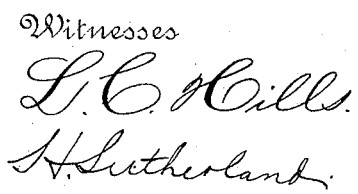 Witnesses
L. C. Hills.
H. Sutherland.